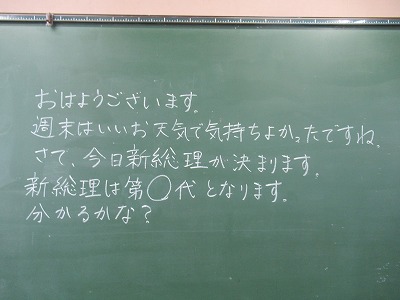 おはようございます。
週末はいいお天気で気持ちよかったですね。
さて、今日新総理が決まります。
新総理は第〇代となります。
分かるかな？